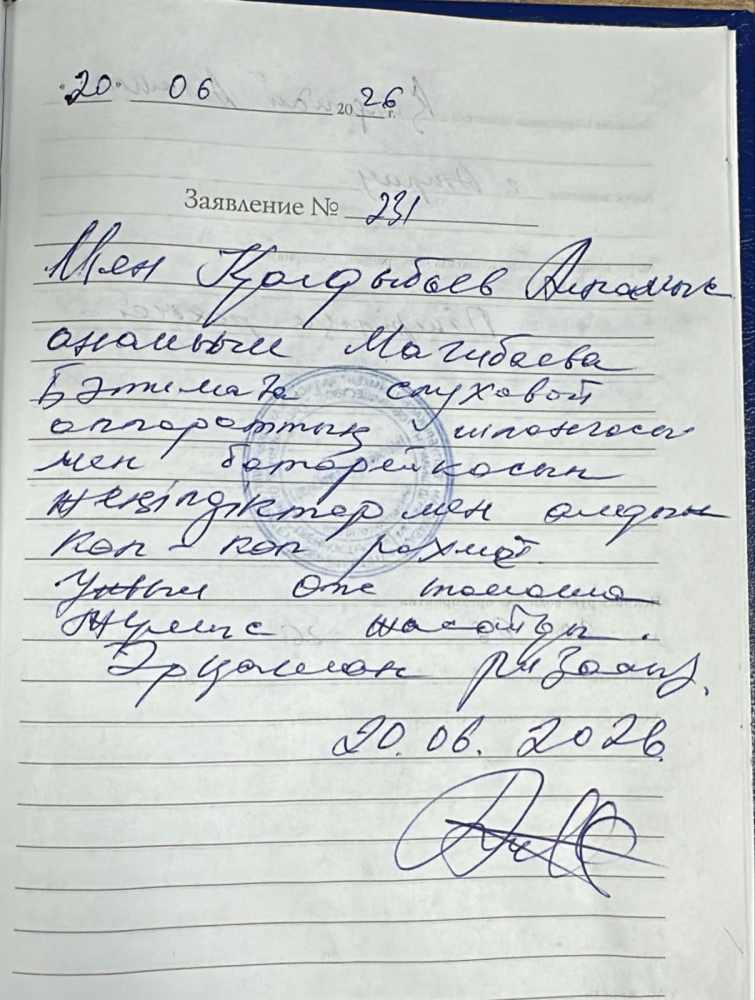 20. 06 2026 г.
Заявление № 231
Мен Қалдыбаев Алпамыс
анамның Магибаева
Бәтимаға слуховой
аппараттың шлангасы
мен батарейкасын
жеңілдіктармен алдым
көп-көп рахмет
Ұжым өте тамаша
жұмыс жасайды.
Әрқашан ризамыз.
20.06.2026.